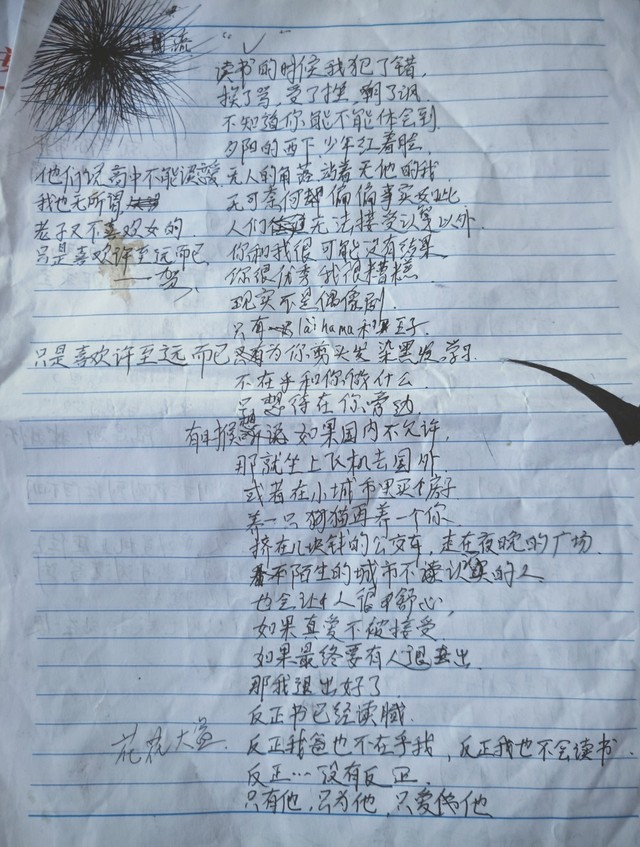 流 “✓”
读书的时候我犯了错,
挨了骂,受了挫,
不知道你能不能体会到.
夕阳的西下 少年红着脸,
他们说高中不能谈恋爱 无人的角落站着无他的我
我也无所谓 无可奈何却偏偏事实如此
老子又不喜欢女的 人们无法接受认识以外.
只是喜欢许至远而已, 你和我很可能没有结果
——贺、 你很优秀 我很糟糕.
现实不是偶像剧
只有 laihama和豆子.
只是喜欢许至远而已 没有为你剪头发 染黑发 学习
不在乎和你做什么.
只想待在你旁边.
有时候想说 如果国内不允许,
那就坐上飞机去国外.
或者在小城市里买个房子
养一只狗猫再养一个你
挤在几块钱的公交车,走在夜晚的广场.
陌生的城市不认识的人
也会让人很舒心,
如果真爱不被接受
如果最终要有人退出.
那我退出好了.
反正书已经读腻.
花花大 反正我爸也不在乎我,反正我也不会读书
反正…没有反正.
只有他,只为他,只爱他